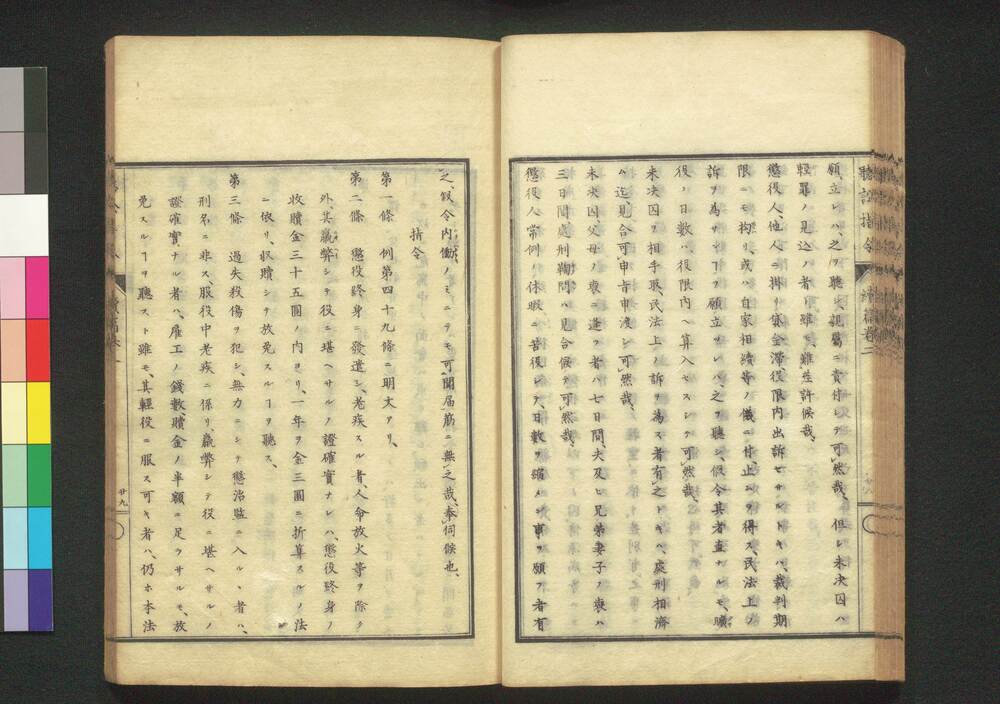 聽訟指令 續編卷二
願立レハ、之ヲ聽シ、親屬ニ責付シテ可然哉、但シ未決囚ハ
輕罪ノ見込ノ者ト雖モ、難差許候哉、
懲役人、他人ニ掛リ貸金滯、役限內出訴セサルトキハ、裁判期
限ニモ拘リ、或ハ自家相續等ノ儀ニ付、止ムヲ得ス、民法上ノ
訴ヲ為サンヿヲ願立ツレハ、之ヲ聽シ、假令其者直ナルモ、曠
役ノ日數ハ、役限內ヘ算入セスシテ可然哉、
未決囚ヲ相手取民法上ノ訴ヲ為ス者有之トキハ、處刑相濟
ハ迄見合可申旨申渡シ可然哉、
未決囚父母ノ喪ニ逢フ者ハ七日間、夫及ヒ兄弟妻子ノ喪ハ
三日間處刑鞫問ハ見合候テ可然哉、
懲役人常例ノ休暇ニ苦役シテ、日數ヲ縮メン事ヲ願フ者有
之、假令內働ノミニテモ可聞届筋ニ無之哉、奉伺候也、
指令
第一條 例第四十九條ニ明文アリ、
第二條 懲役終身ニ發遣シ、老疾スル者、人命放火等ヲ除ク
外、其羸弊シテ役ニ堪ヘサルノ證確實ナレハ、懲役終身ノ
收贖金三十五圓ノ內ヨリ、一年ヲ金三圓ニ折算スルノ法
ニ依リ、收贖シテ放免スルヿヲ聽ス、
第三條 過失殺傷ヲ犯シ、無力ニシテ懲治監ニ入ルヽ者ハ、
刑名ニ非ス、服役中老疾ニ係リ、羸弊シテ役ニ堪ヘサルノ
證確實ナル者ハ、雇工ノ錢數贖金ノ半額ニ足ラサルモ、放
免スルヿヲ聽スト雖モ、其輕役ニ服ス可キ者ハ、仍ホ本法
廿九